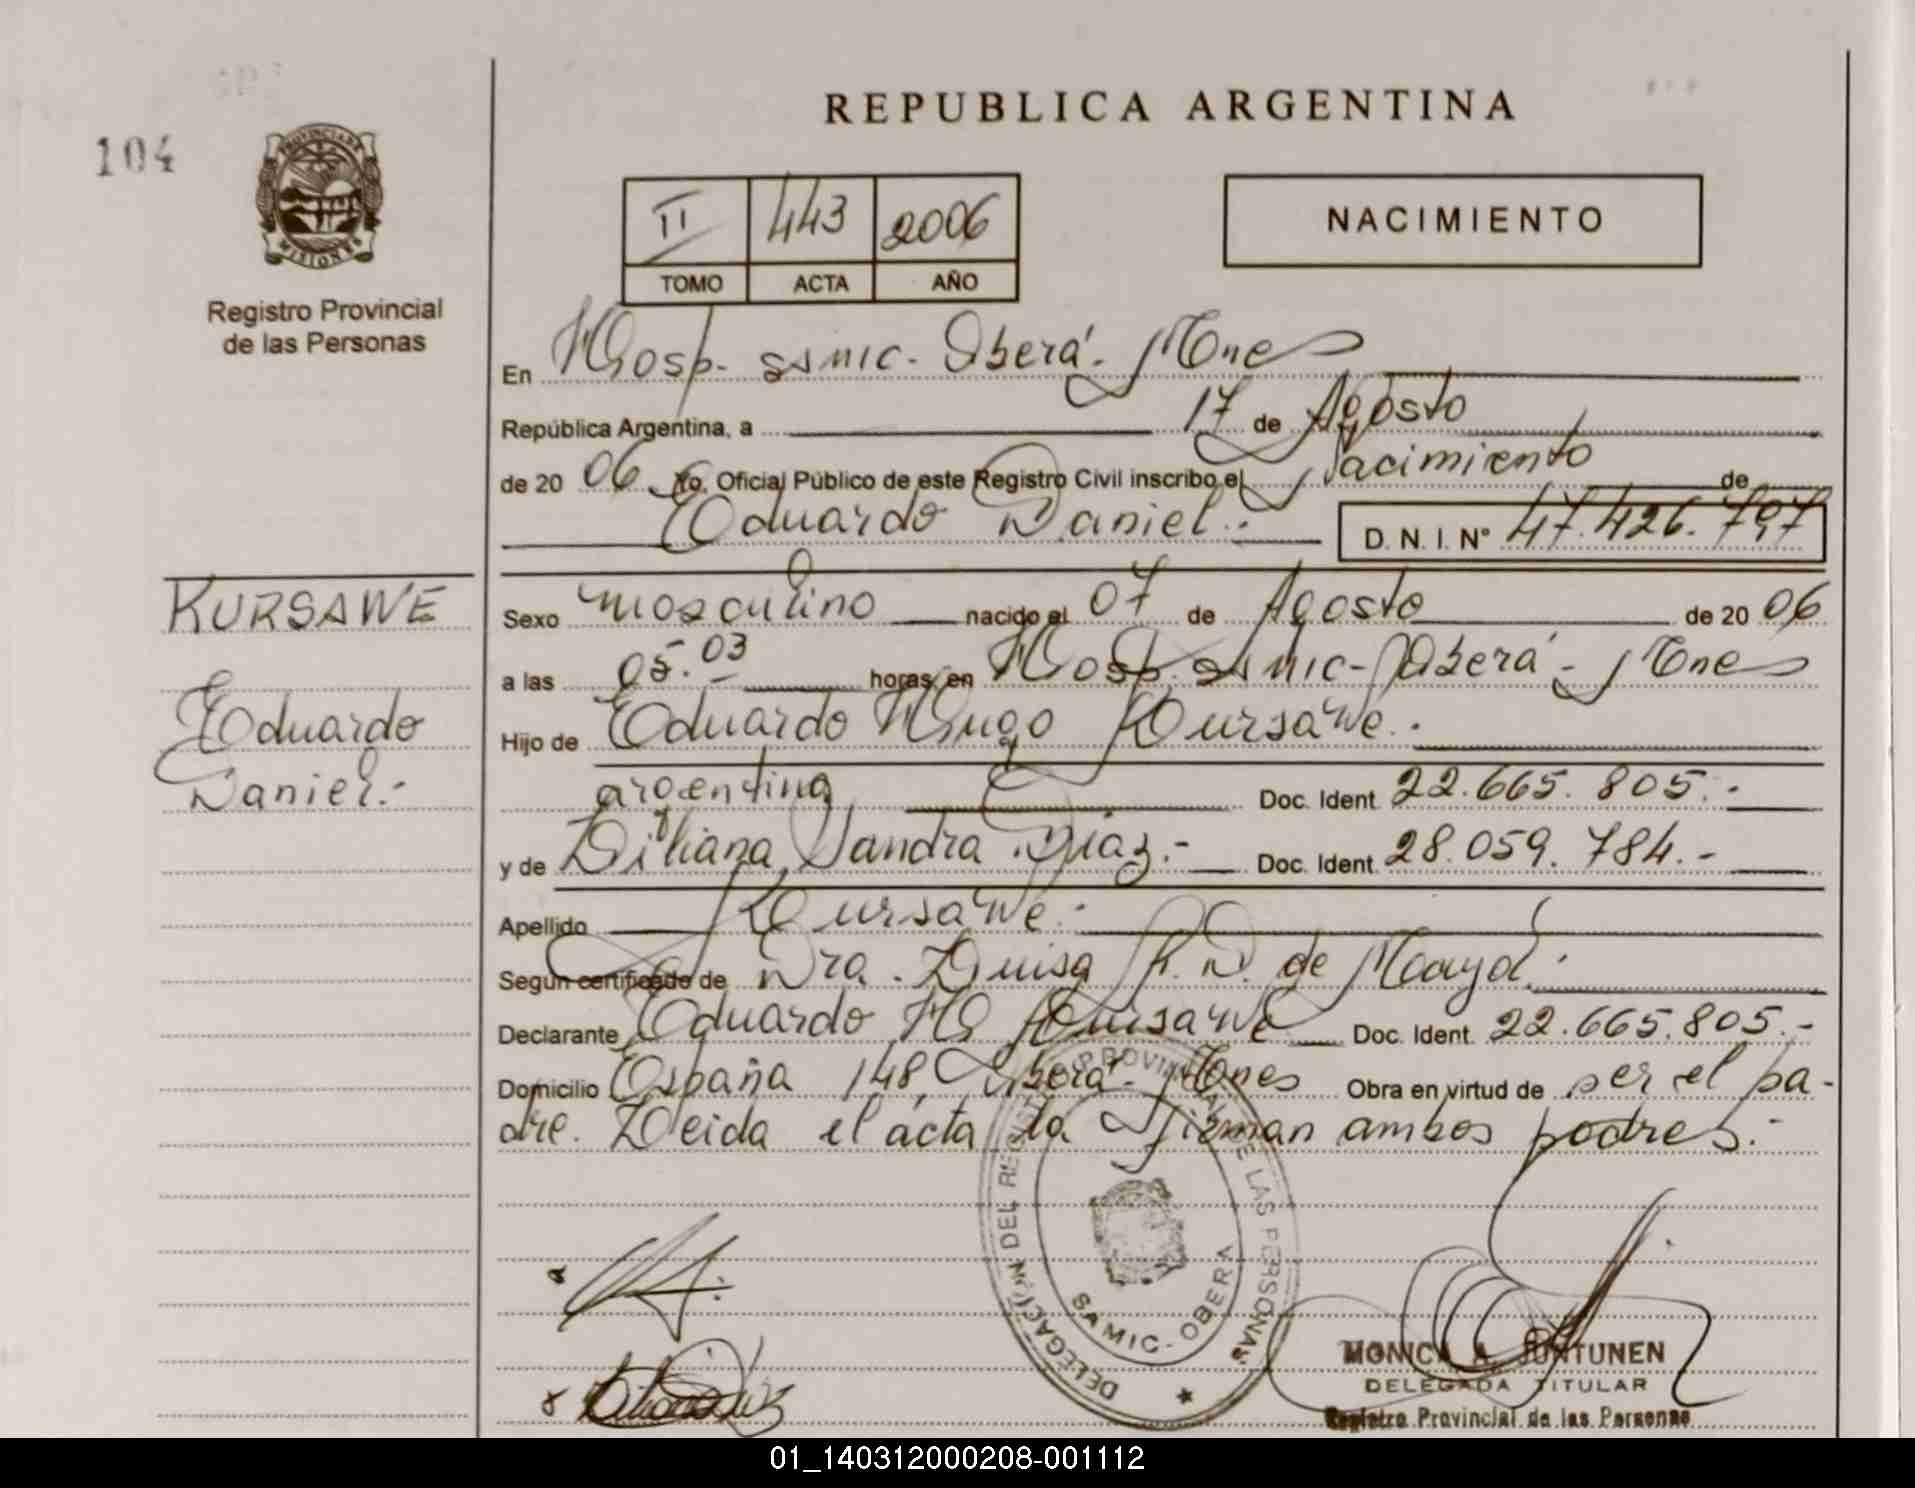 104
PROVINCIA DE
MISIONES
Registro Provincial
de las Personas
REPUBLICA ARGENTINA
II 443 2006
TOMO ACTA AÑO
NACIMIENTO
En Hosp. SAMIC. Oberá. Mnes
República Argentina, a 17 de Agosto
de 20 06 Yo, Oficial Público de este Registro Civil inscribo el Nacimiento de
Eduardo Daniel.- D. N. I. N° 47.426.797
KURSAWE
Eduardo
Daniel.-
Sexo masculino nacido el 07 de Agosto de 20 06
a las 05.03 horas, en Hosp. SAMIC- Oberá- Mnes
Hijo de Eduardo Hugo Kursawe.-
argentina Doc. Ident. 22.665.805.-
y de Liliana Sandra Diaz.- Doc. Ident. 28.059.784.-
Apellido Kursawe.-
Según certificado de Dra. Luisa R. D. de
Declarante Eduardo H Kursawe Doc. Ident. 22.665.805.-
Domicilio España 148, Oberá- Mnes Obra en virtud de ser el pa-
dre. Leida el acta la firman ambos padres.-
DELEGACIÓN DEL REGISTRO PROVINCIAL DE LAS PERSONAS
SAMIC - OBERA
MONICA A. JUNTUNEN
DELEGADA TITULAR
Registro Provincial de las Personas
01_140312000208-001112